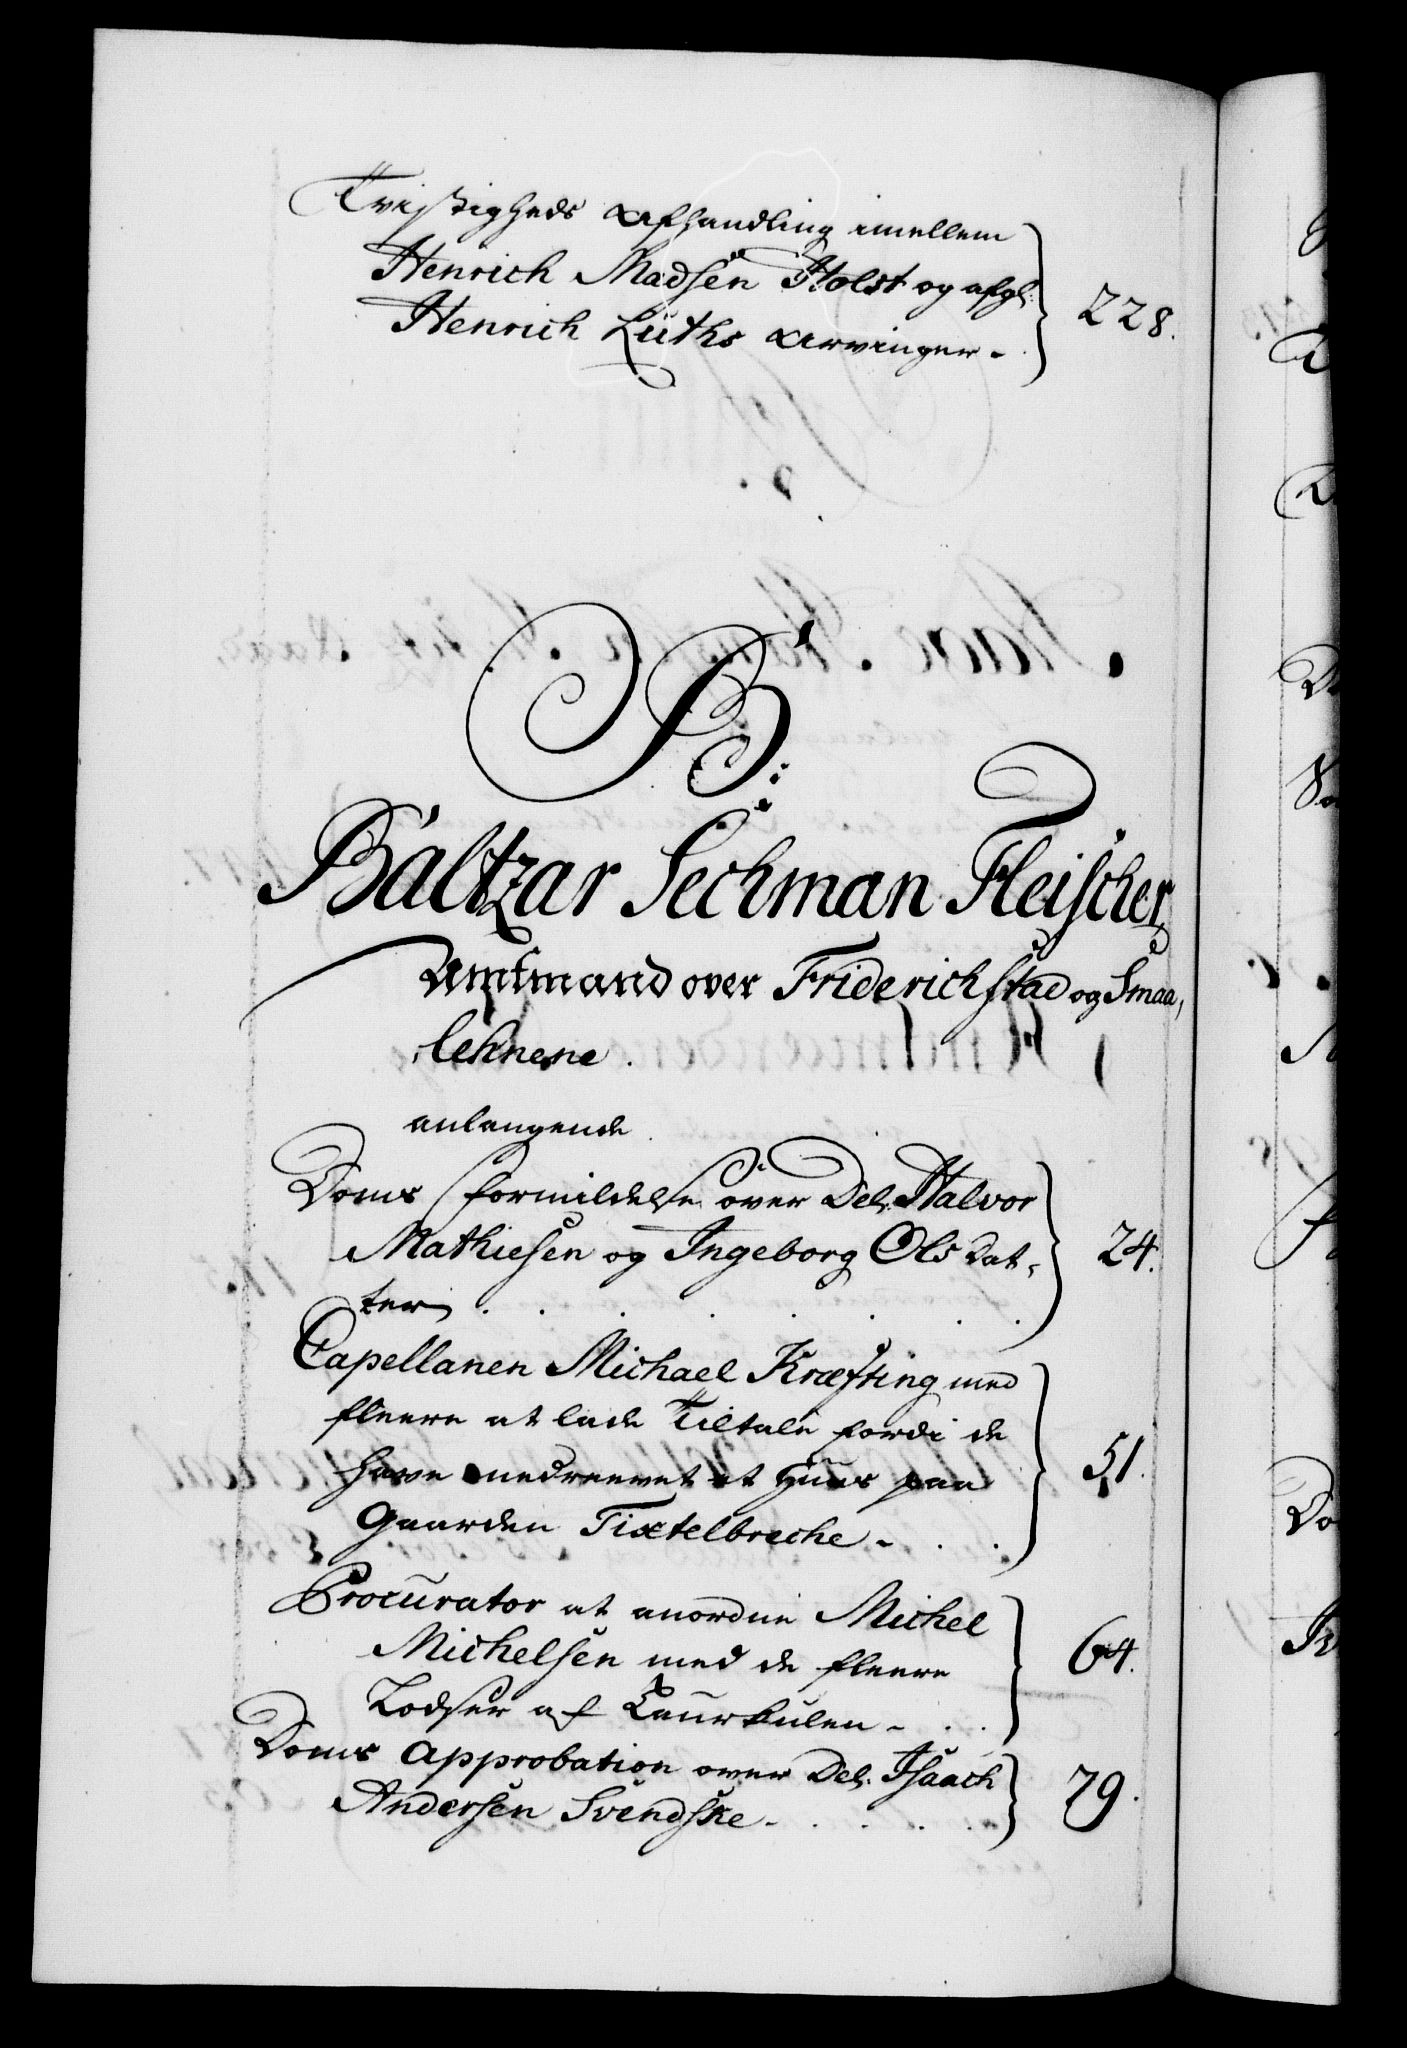 Tvistigheds Afhandling imellem
Henrich Madsen Holst og afgl:
Henrich Lüths Arvinger - 228.
B:
Baltzar Sechman Fleischer
Amtmand over Friderichstad og Smaa,
lehnene.
anlangende.
Doms formildelse over Del: Halvor
Mathiesen og Ingeborg Ols Dat-
ter 24.
Capellanen Michael Kræfting med
fleere at lade Tiltale fordi de
have nedreevet et Huus paa
Gaarden Tixtelbreche - 51.
Procurator at anordne Michel
Michelsen med de fleere
Lodser af Laurkulen - 64.
Doms Approbation over Del: Isaach
Andersen Svendske - 79.